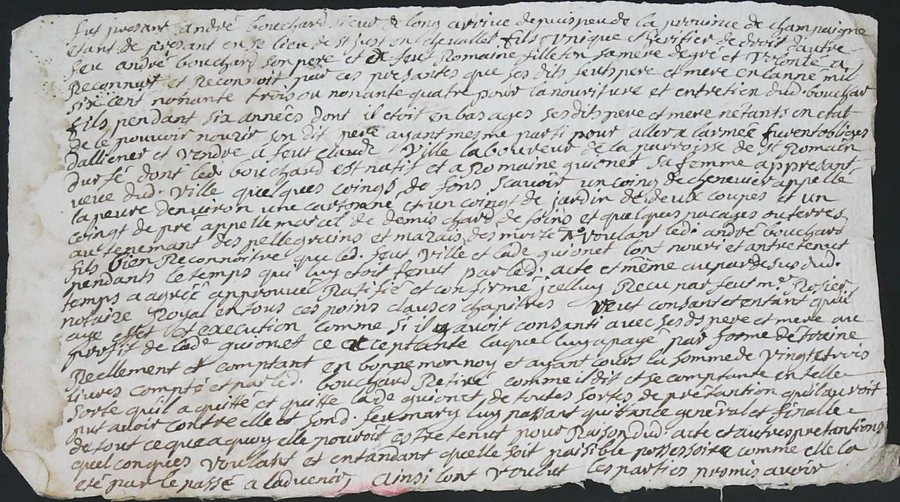 fut presant andré bouchard de lon arrive depuis peu de la province de champaigne
estant de presant en ce lieu de st just en chevallet fils unique et heritier de droit d'autre
feu andré bouchard son pere et de feue Romaine filleton sa mere de gré et volonté a
Reconnut et Reconnoit par ces presantes que ses dits feuts pere et mere en l'anne mil
sixcent nonante trois ou nonante quatre pour la nouriture et entretien dud. bouchar
fils pendant six années dont il etoit en bas ages ses dits pere et mere n'étants en etat
de le pouvoir nourir son dit pere ayant mesme parti pour aller a l'armée furent obliges
dalliener et vendre a feut Claude Ville laboureur de la parroisse de st Romain
durfé dont led. bouchard est natif et a Romaine guionet sa femme a ppresant
veuve dud. Ville quelques coings de fons scavoir un coing de chenevier appellé
la peure d'environ une cartonne et un coing de jardin de deux coupes et un
coing de pré appellé marcal de demis chard de foins et quelques pacages ou terres
au tenement des pellegrains et marais des morte voulant led. andré bouchard
fils bien Reconnoitre que led. feut Ville et lad. guionet l'ont nouri et antretenut
pendants le temps qui luy etoit tenut par led. acte et même au par desus dud.
temps a agréé approuvé Ratifié et confirmé jcelluy Recu par feut me Rosier
notaire Royal en tous ces poins clauses chapitres veut consant et entant qu'il
aye effet et execution comme si il y avoit consanti avec ses ds pere et mere au
profit de lad. guionet ce acceptante laquel luy a payé par forme de
Reellement et comptant en bonne monnoy et ayant cours la somme de vingt trois
livres compté et par led. bouchard Retiré comme il dit et se comptante en telle
sorte qu'il a quitté et quitte lad. guionet de toutes sortes de prétantion qu'il auroit
put avoir contre elle et sond. feu mary luy passant quittance general et finalle
de tout ce que a quoy elle pouroit estre tenut pour Raison dud. acte et autres pretantions
quelconques voulant et entandant quelle soit paisible possessoire comme elle la
eté par le passé a ladvenir ainsi l'ont voulut les parties promis avoir